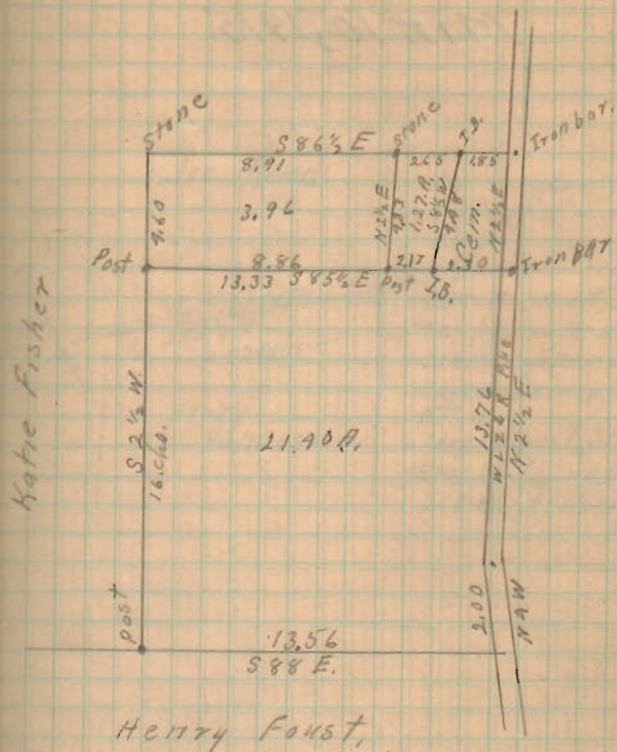 Stone
Stone
I.B.
Iron bar.
S 86 ½ E
8.91
2.65
1.85
4.60
3.96
N 2 ½ E
1.27 A.
S 8 ½ W
Cem.
N 2 ½ E
Post
8.86
2.17
2.30
Iron Bar
13.33 S 85 ½ E
Post
I.B.
Katie Fisher
S 2 ½ W.
16.chs.
21.90 A.
13.76
Pike
N 2 ½ E
post
2.00
N 4 W
13.56
S 88 E.
Henry Foust,